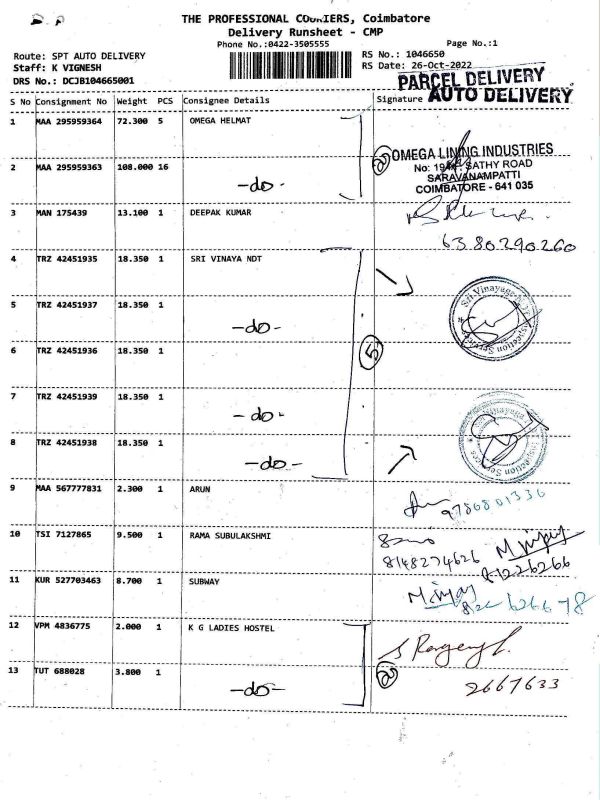 D. P
THE PROFESSIONAL COURIERS, Coimbatore
Delivery Runsheet - CMP
Phone No.:0422-3505555
Page No.:1
Route: SPT AUTO DELIVERY
RS No.: 1046650
Staff: K VIGNESH
RS Date: 26-Oct-2022
DRS No.: DCJB104665001
PARCEL DELIVERY
AUTO DELIVERY
S No Consignment No Weight PCS Consignee Details Signature
1 MAA 295959364 72.300 5 OMEGA HELMAT
OMEGA LINING INDUSTRIES
SATHY ROAD
SARAVANAMPATTI
COIMBATORE - 641 035
2 MAA 295959363 108.000 16
-do-
2
3 MAN 175439 13.100 1 DEEPAK KUMAR
63.80290260
4 TRZ 42451935 18.350 1 SRI VINAYA NDT
5 TRZ 42451937 18.350 1
-do-
Sri Vinayaga
Inspection Services
6 TRZ 42451936 18.350 1
5
7 TRZ 42451939 18.350 1
-do-
8 TRZ 42451938 18.350 1
-do-
Sri Vinayaga
Inspection Services
9 MAA 567777831 2.300 1 ARUN
9786801336
10 TSI 7127865 9.500 1 RAMA SUBULAKSHMI
8148274626
11 KUR 527703463 8.700 1 SUBWAY
12 VPM 4836775 2.000 1 K G LADIES HOSTEL
13 TUT 688028 3.800 1
-do-
2
2667633